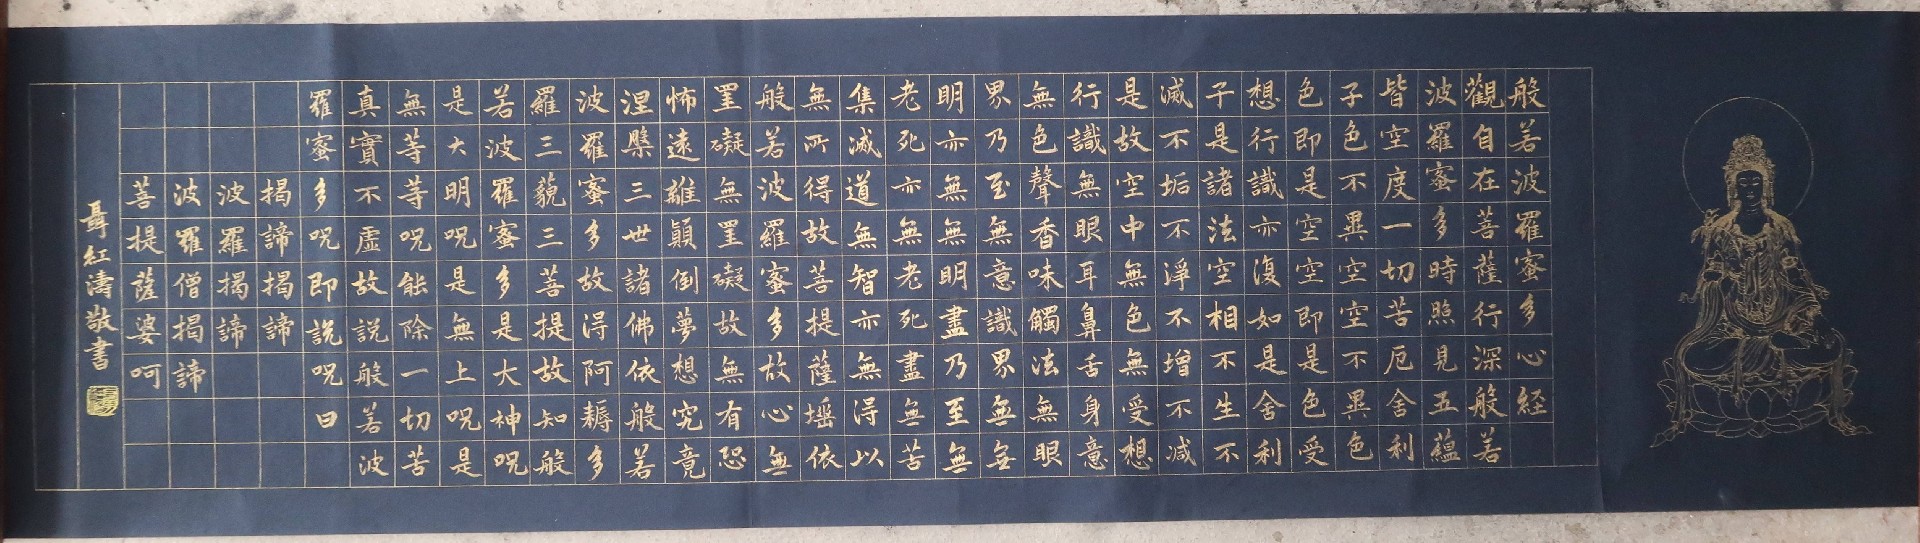 般若波羅蜜多心経
觀自在菩薩行深般若
波羅蜜多時照見五蘊
皆空度一切苦厄舍利
子色不異空空不異色
色即是空空即是色受
想行識亦復如是舍利
子是諸法空相不生不
滅不垢不淨不增不减
是故空中無色無受想
行識無眼耳鼻舌身意
無色聲香味觸法無眼
界乃至無意識界無無
明亦無無明盡乃至無
老死亦無老死盡無苦
集滅道無智亦無得以
無所得故菩提薩埵依
般若波羅蜜多故心無
罣礙無罣礙故無有恐
怖遠離顛倒夢想究竟
涅槃三世諸佛依般若
波羅蜜多故得阿耨多
羅三藐三菩提故知般
若波羅蜜多是大神呪
是大明呪是無上呪是
無等等呪能除一切苦
真實不虛故說般若波
羅蜜多呪即說呪曰
揭諦揭諦
波羅揭諦
波羅僧揭諦
菩提薩婆呵
聶紅濤敬書